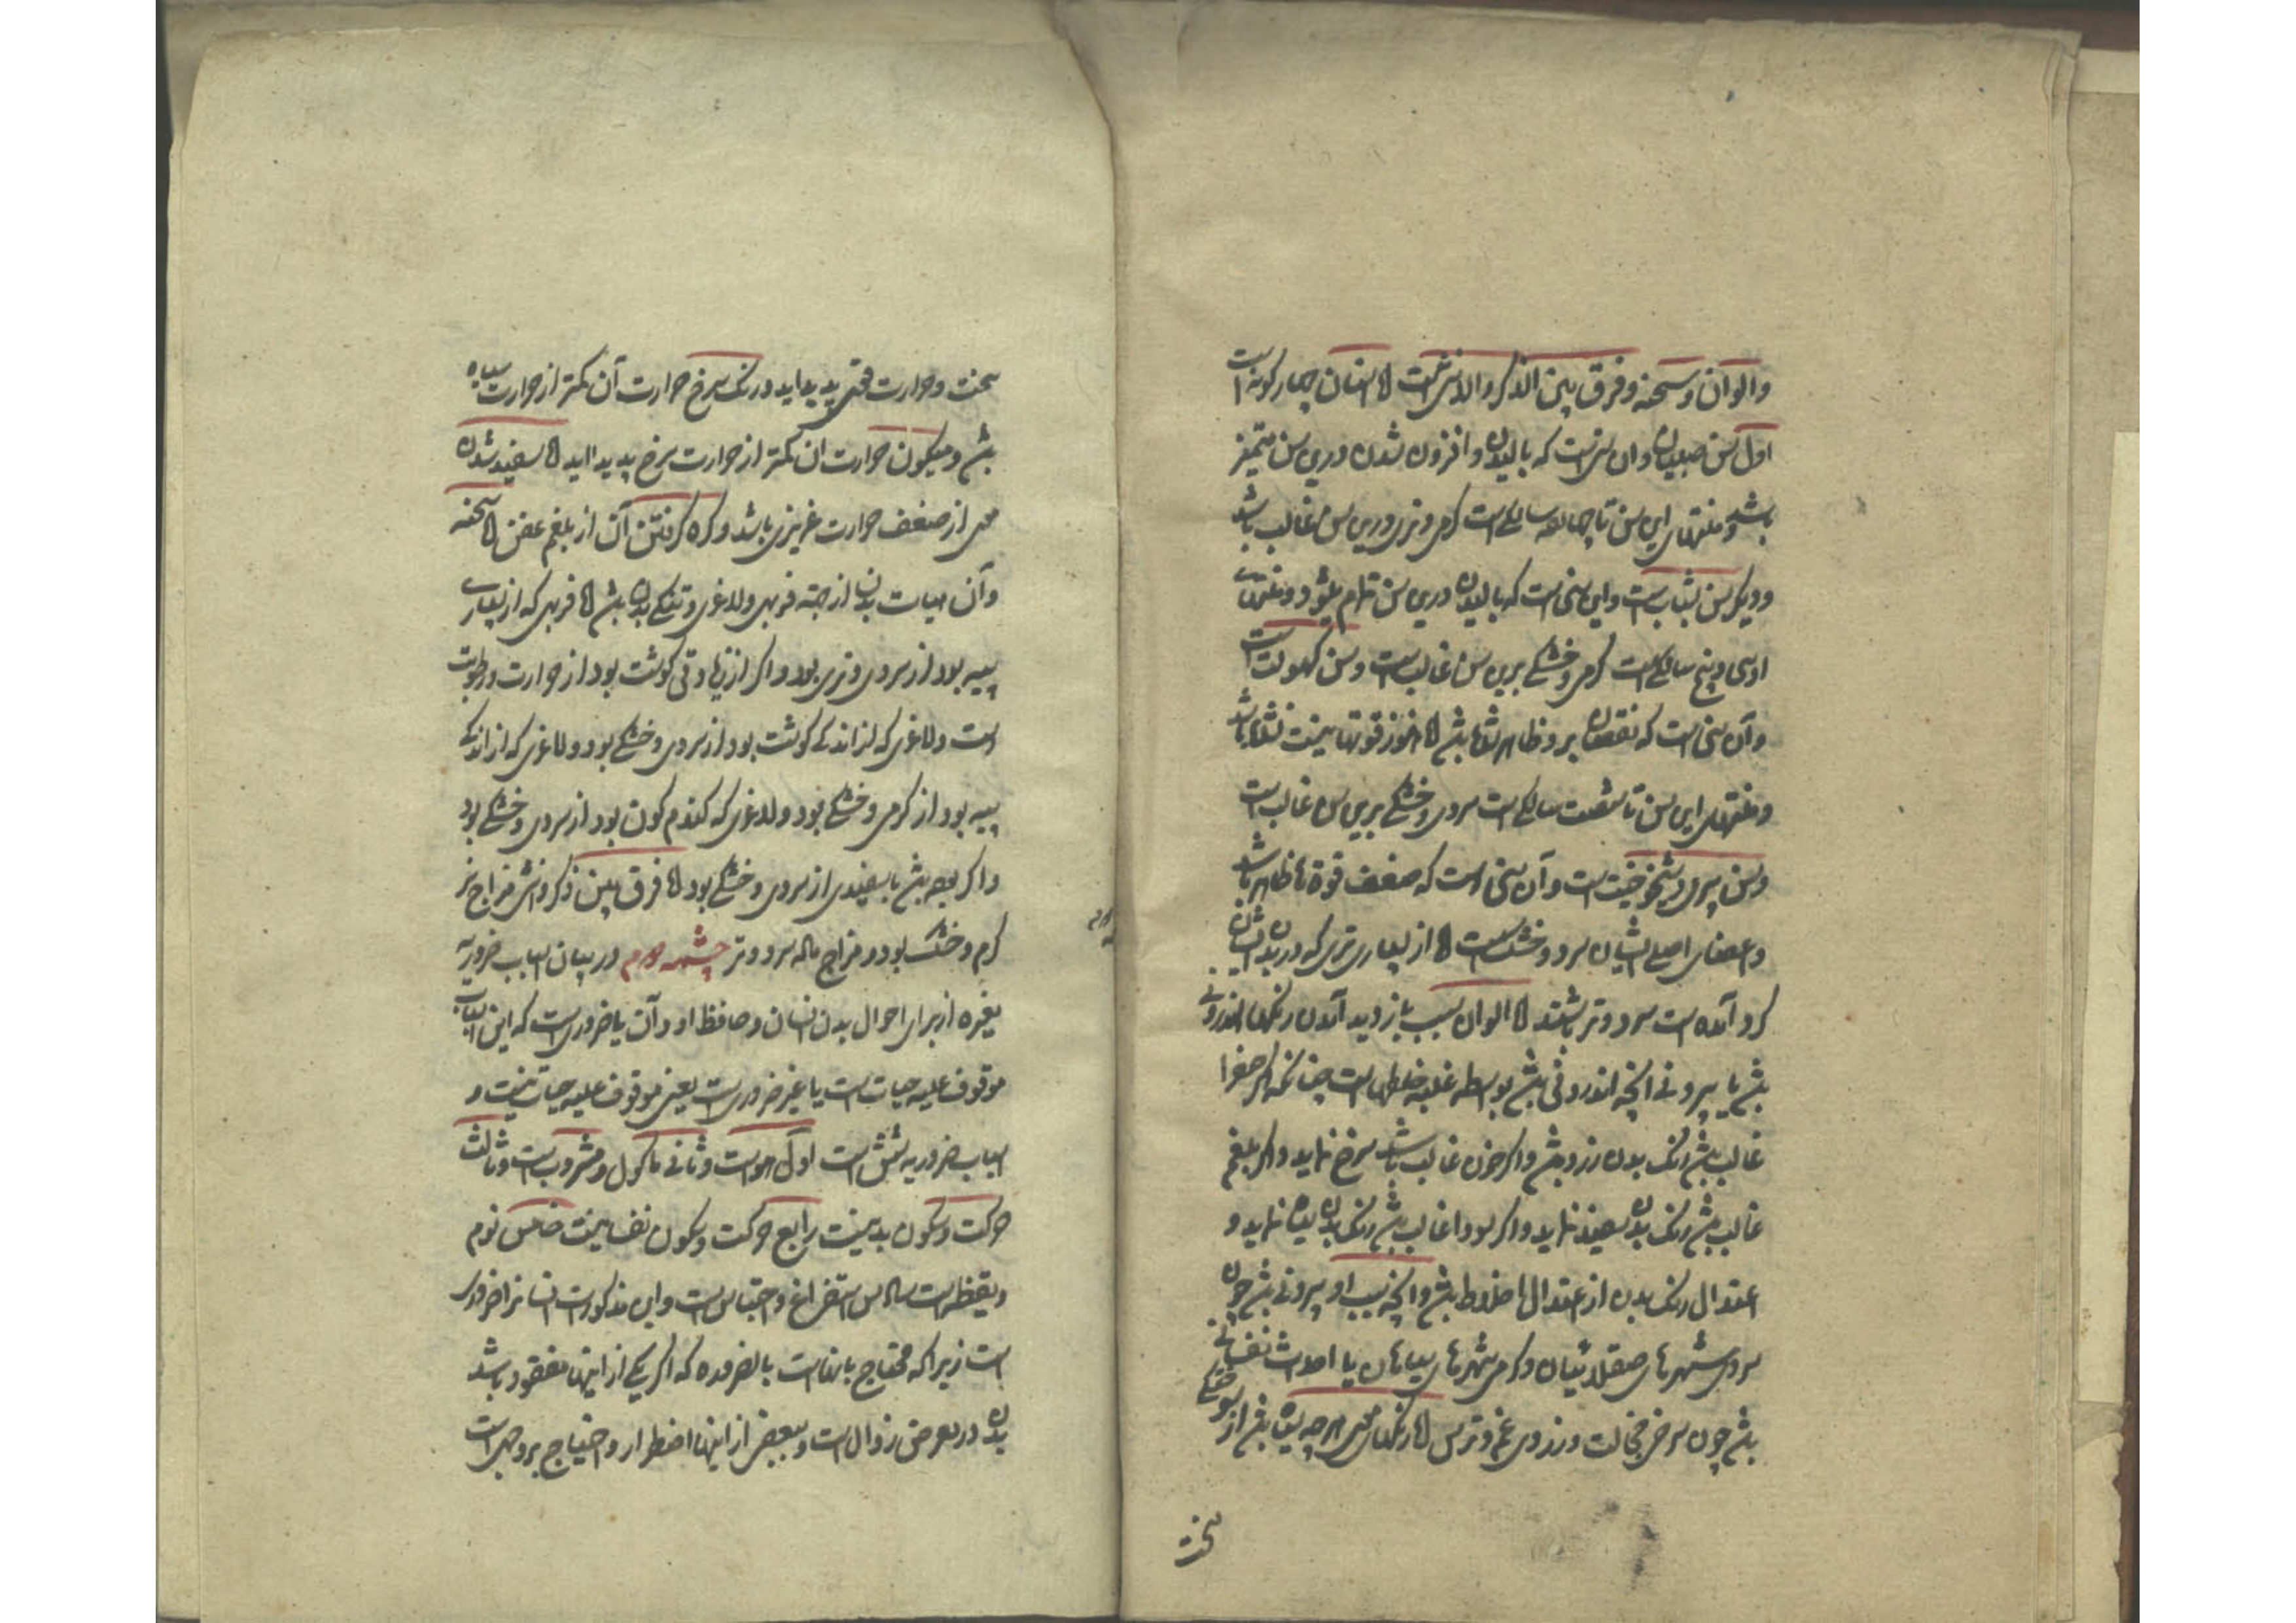 والوان و سحنه و فرق بین الذکر و الانثی است اما اسنان چهار کونه است
اول سن صبیان و ان سنی است که بالیدن و افزون شدن درین سن متمیز
باشد و منتهای این سن تا چهارده سالکی است کرمی و تری درین سن غالب باشد
و دیکر سن شباب است و این سنی است که بالیدن درین سن تمام بشود و منتهای
او سی و پنج سالکی است کرمی و خشکی برین سن غالب است و سن کهولت است
و آن سنی است که نقصان برو ظاهر شده باشد اما هنوز قوتها
و منتهای این سن تا شصت سالکی است سردی و خشکی برین سن غالب است
و سن پیری و شیخوخیت است و آن سنی است که ضعف قوة ها ظاهر باشد
و اعضای اصلی ایشان سرد و خشک است اما از بسیاری تری که در بدن ایشان
کرد آمده است سرد و تر باشند اما الوان سبب بازدید آمدن رنکها اندرونی
بش یا بیرونی انچه اندرونی بش بواسطه غلبه خلطی است چنانکه اکر صفرا
غالب بش رنک بدن زرد بش و اکر خون غالب باشد سرخ نماید و اکر بلغم
غالب بش رنک بدن سفید نماید و اکر سودا غالب بش رنک بدن سیاه نماید و
اعتدال رنک بدن از اعتدال اخلاط بش و انچه سبب او بیرونی بش چون
سردی شهرهای صقلابیان و کرمی شهرهای بیابان یا احداث نفسانی
بش چون سرخی خجالت و زردی غم و ترس اما رنکهای موی هرچه سیاه بش از سوختکی
سخت
سخت و حرارت قوی پدید اید و رنک سرخ حرارت آن کمتر از حرارت سیاه
بش و میکون حرارت ان کمتر از حرارت سرخ پدید اید اما سفید شدن
موی از ضعف حرارت غریزی باشد و کره کرفتن آن از بلغم عفن اما سحنه
و آن هیات بدن از جهة فربهی و لاغری و تنکی بدن بش اما فربهی که از بسیاری
پیه بود از سردی و تری بود و اکر از زیادتی کوشت بود از حرارت و رطوبت
است و لاغری که از اندکی کوشت بود از سردی و خشکی بود و لاغری که از اندکی
پیه بود از کرمی و خشکی بود و لاغری که کندم کون بود از سردی و خشکی بود
و اکر بش با سفیدی از سردی و خشکی بود اما فرق بین ذکر و انثی مزاج نر
کرم و خشک بود و مزاج ماده سرد و تر چشمه دوم در بیان اسباب ضروریه
و غیره از برای احوال بدن انسان و حافظ او و آن یا ضروریست که این اسباب
موقوف علیه حیات است یا غیر ضروریست یعنی موقوف علیه حیات نیست و
اسباب ضروریه شش است اول هواست و ثانی ماکول و مشروب است و ثالث
حرکت و سکون بدنیت رابع حرکت و سکون نفسانیت خامس نوم
و یقظه است سادس استفراغ و احتباس است و این مذکورات انسانرا ضروری
است زیرا که محتاج بانهاست بالضروره که اکر یکی از اینها مفقود باشد
بدن در معرض زوال است و بعضی از اینها اضطرار و احتیاج بروجهی است